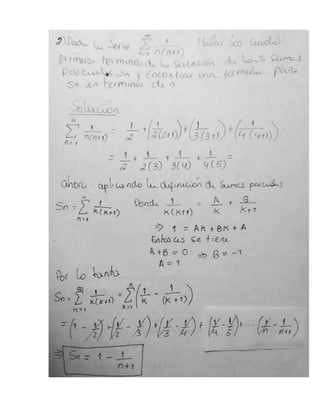 2) Dada la Serie ∞∑n=1 1/n(n+1) Hallar los cuatro
primeros terminos de la sucesión de las Sumas
Parciales Sn y Encontrar una formula para
Sn en terminos de n.
Solución
4∑n=1 1/n(n+1) = 1/2 + (1/2(2+1)) + (1/3(3+1)) + (1/4(4+1))
= 1/2 + 1/2(3) + 1/3(4) + 1/4(5) =
ahora aplicando la definición de Sumas parciales
Sn = ∑k=1 1/k(k+1) Donde 1/k(k+1) = A/k + B/k+1
⇒ 1 = AK + BK + A
Entonces Se tiene
A+B = 0 ⇒ B = -1
A = 1
Por lo tanto
Sn = ∞∑k=1 1/k(k+1) = n∑k=1 (1/k - 1/(k+1))
= (1 - 1/2) + (1/2 - 1/3) + (1/3 - 1/4) + (1/4 - 1/5) + ... (1/n - 1/n+1)
⇒ Sn = 1 - 1/n+1